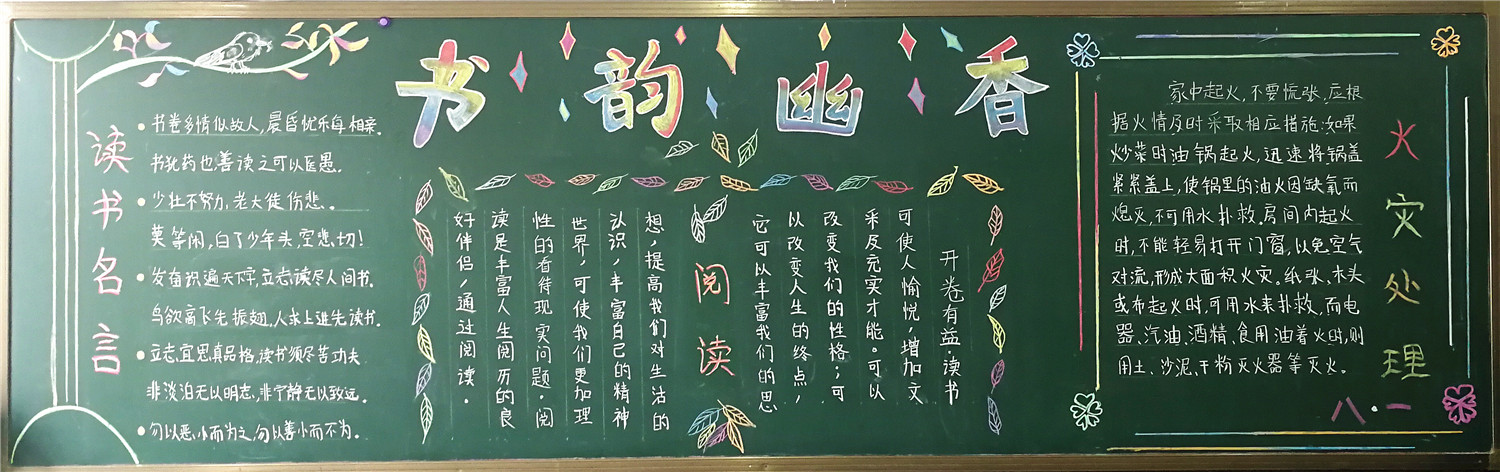 书韵幽香
读书名言
书卷多情似故人，晨昏忧乐每相亲。
书犹药也，善读之可以医愚。
少壮不努力，老大徒伤悲。
莫等闲，白了少年头，空悲切！
发奋识遍天下字，立志读尽人间书。
鸟欲高飞先振翅，人求上进先读书。
立志宜思真品格，读书须尽苦功夫
非淡泊无以明志，非宁静无以致远。
勿以恶小而为之，勿以善小而不为。
阅读
开卷有益·读书
可使人愉悦，增加文
采及充实才能。可以
改变我们的性格；可
以改变人生的终点，
它可以丰富我们的思
想，提高我们对生活的
认识，丰富自己的精神
世界，可使我们更加理
性的看待现实问题。阅
读是丰富人生阅历的良
好伴侣，通过阅读。
火灾处理
家中起火，不要慌张，应根
据火情及时采取相应措施：如果
炒菜时油锅起火，迅速将锅盖
紧紧盖上，使锅里的油火因缺氧而
熄灭，不可用水扑救，房间内起火
时，不能轻易打开门窗，以免空气
对流，形成大面积火灾。纸张、木头
或布起火时，可用水来扑救，而电
器、汽油、酒精、食用油着火时，则
用土、沙泥、干粉灭火器等灭火。
八·一